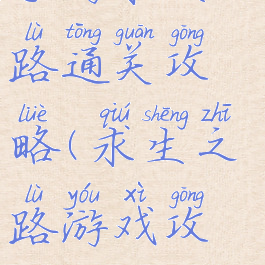 lù tōng guān gōng
路通关攻
lüè qiú shēng zhī
略(求生之
lù yóu xì gōng
路游戏攻